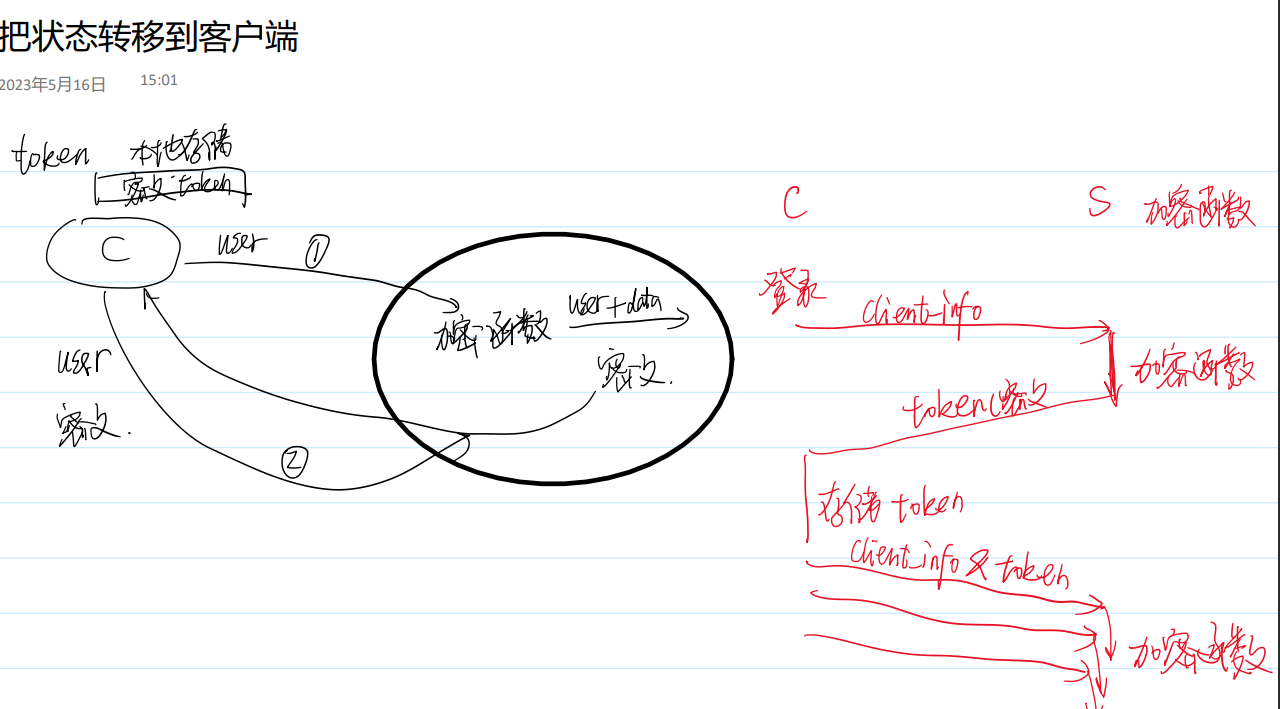 把状态转移到客户端
2023年5月16日 15:01
token 本地存储
密文token
C
user ①
加密函数 user+data
密文.
user
密文.
②
C S 加密函数
登录 client-info
加密函数
token(密文
存储 token
client_info & token
加密函数